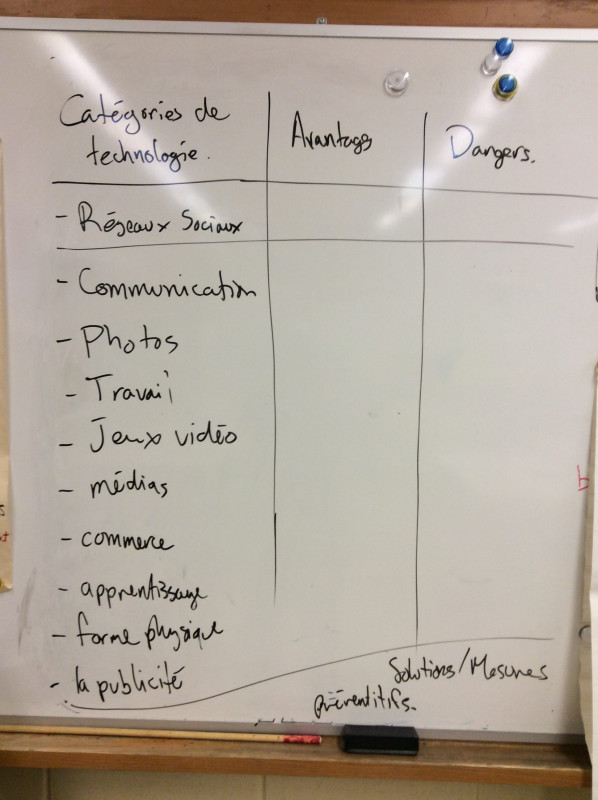 Catégories de
technologie.
Avantages
Dangers.
- Réseaux Sociaux
- Communication
- Photos
- Travail
- Jeux vidéo
- médias
- commerce
- apprentissage
- forme physique
- la publicité
Solutions/Mesures
préventitifs.
b